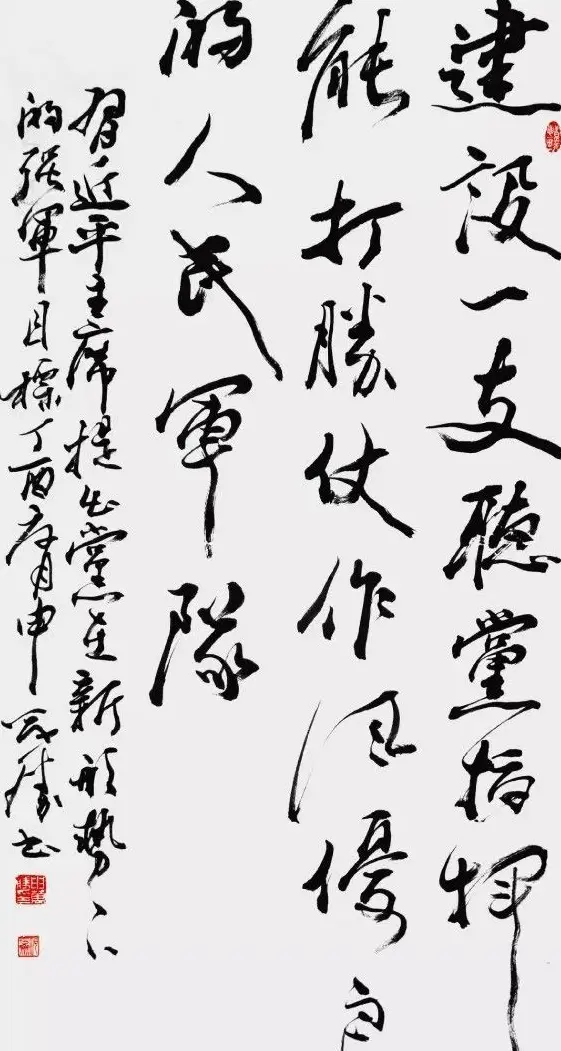 建設一支聽黨指揮
能打勝仗作风優良
的人民軍隊
習近平主席提出黨在新形勢下
的强軍目標丁酉夏月申书